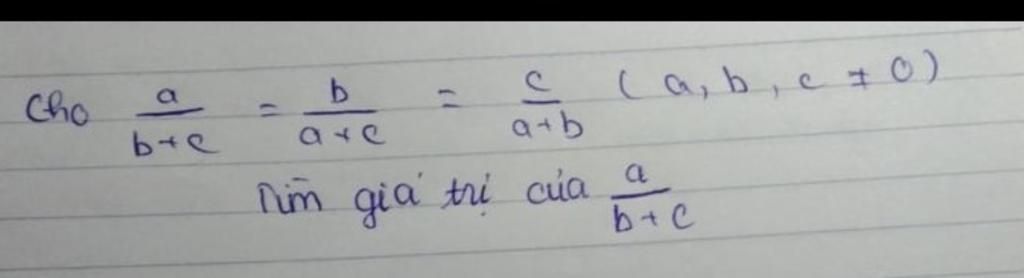 Cho a/(b+c) = b/(a+c) = c/(a+b) (a, b, c ≠ 0)
Tìm giá trị của a/(b+c)